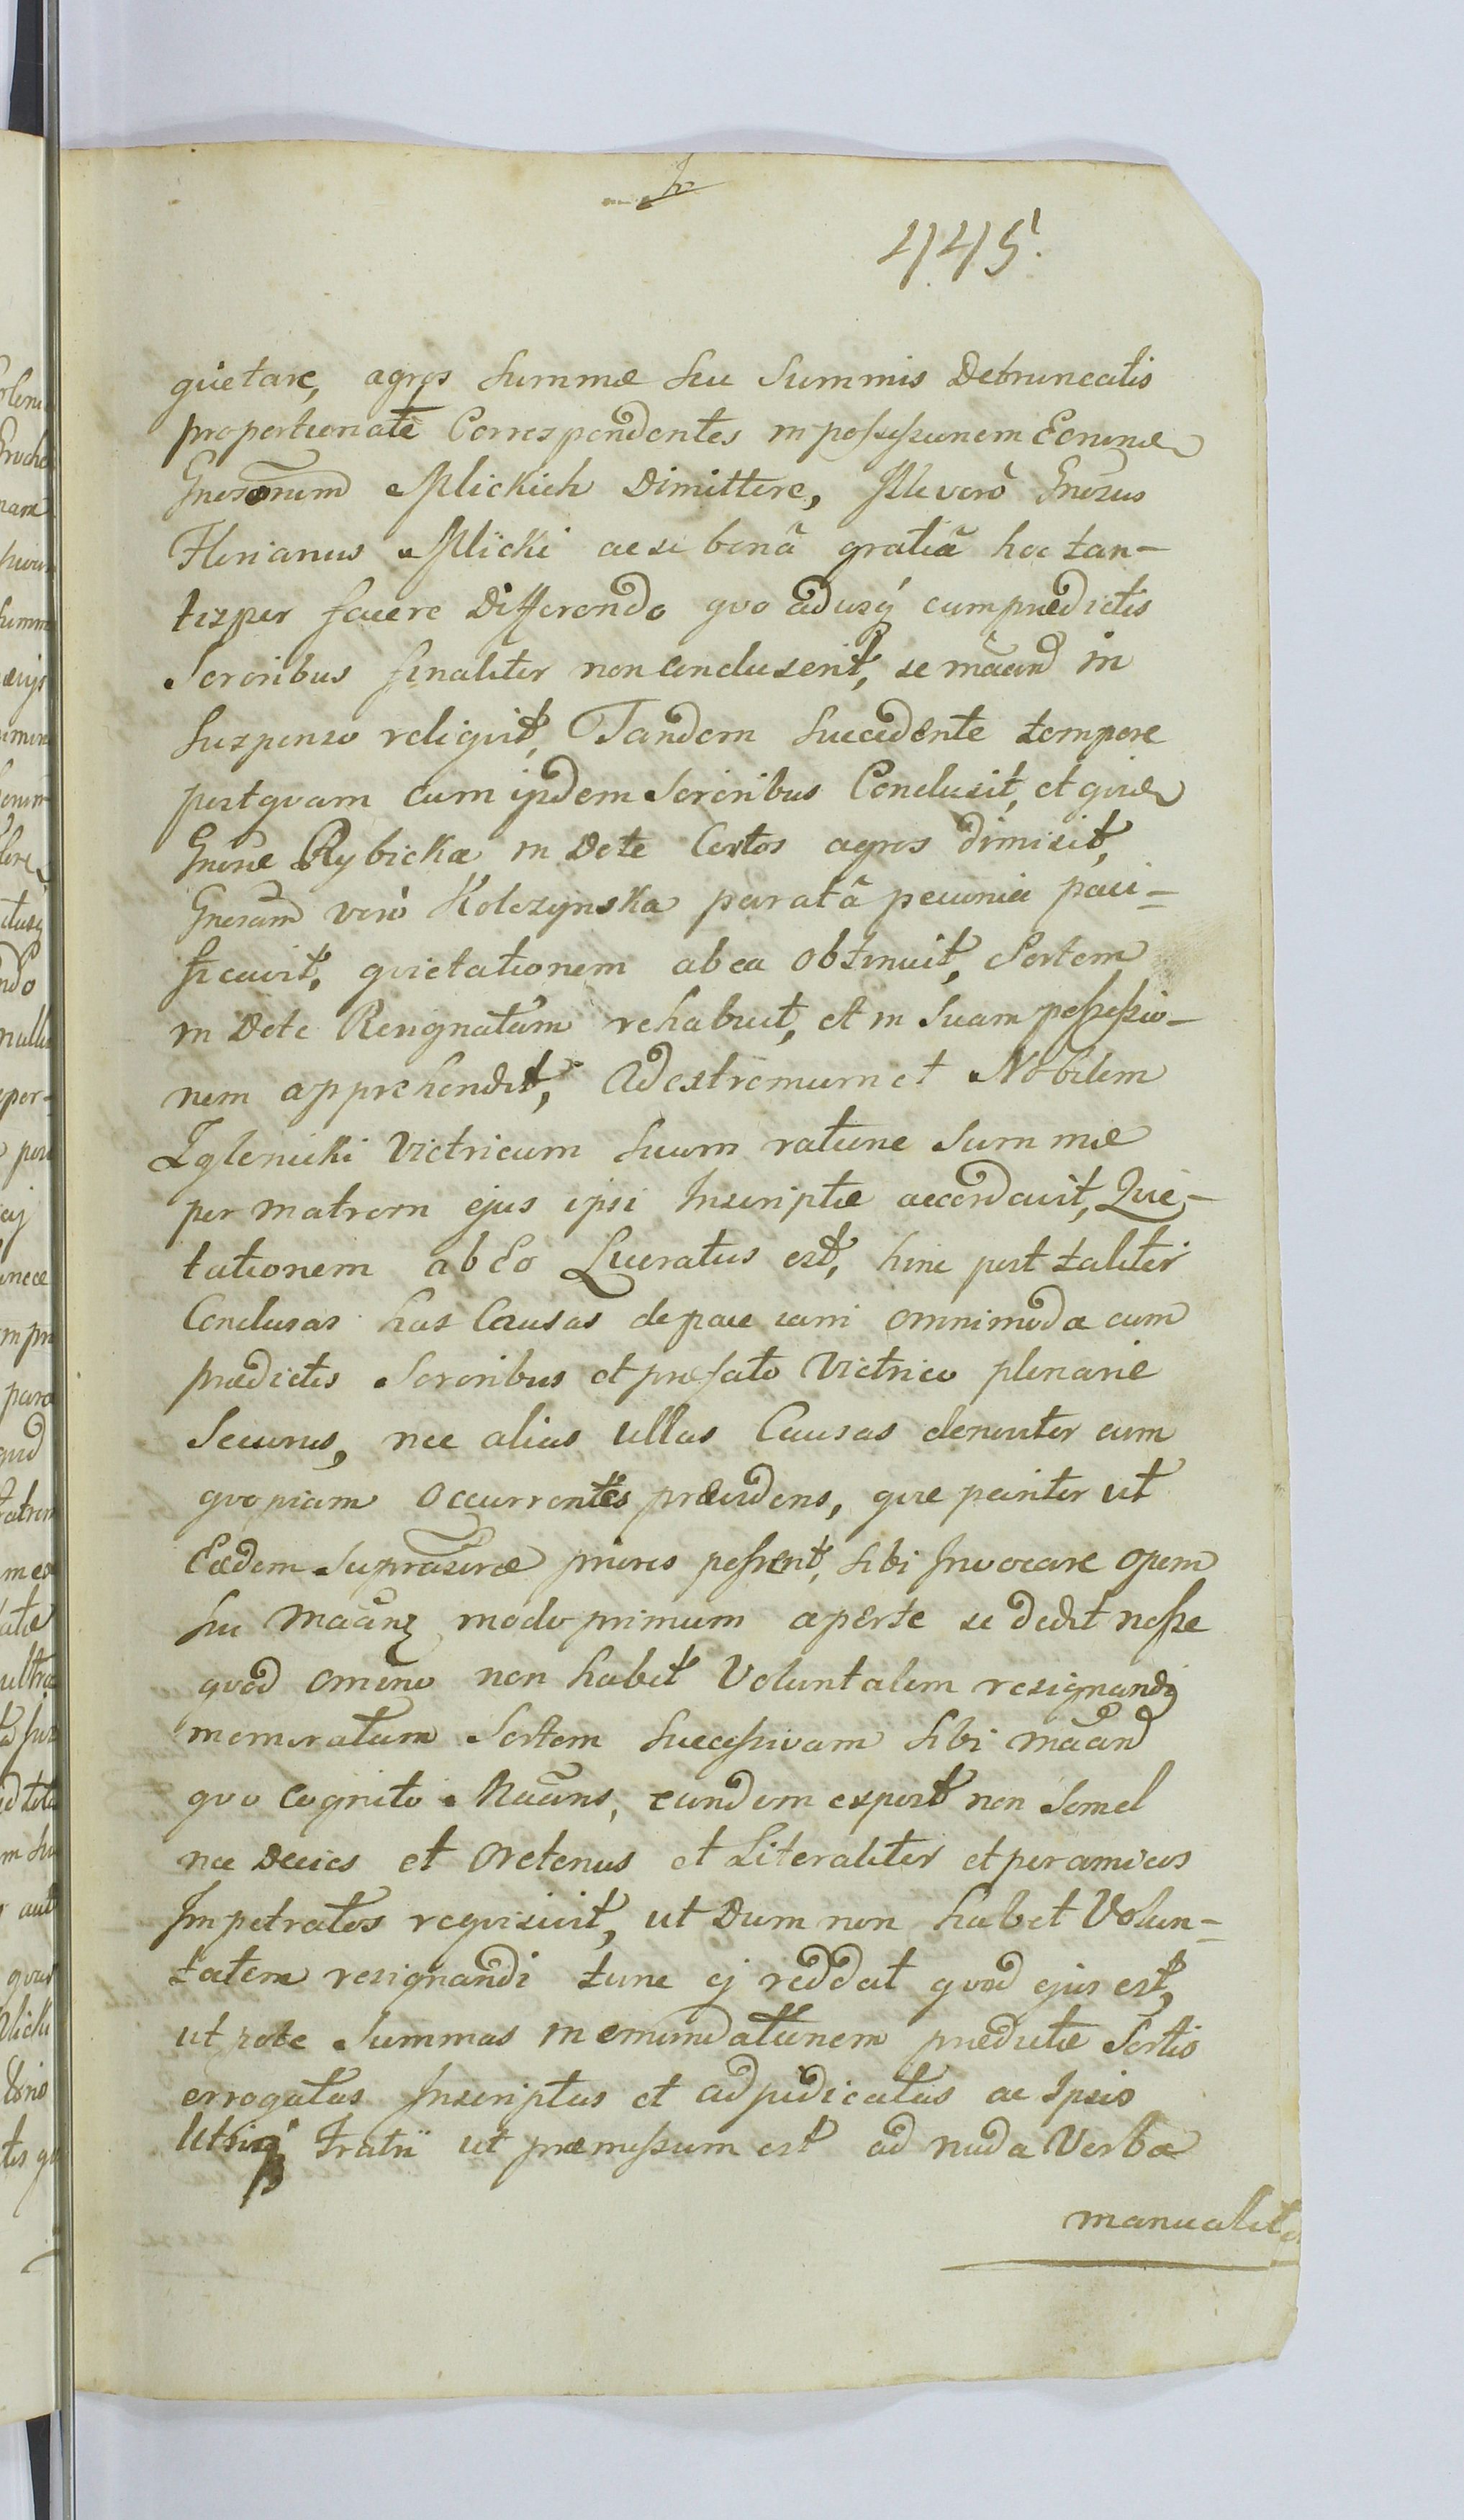 445.
quietare, agros summæ seu Summis Detruncatis
proportionatè Correspondentes in possessionem Eorund
Gnosorum Mlickich Dimittere, Ille verò Gnosus
Florianus Mlicki acsi bonâ gratiâ hoc tan-
tisper facere Differendo quo adusq cum prædictis
Sororibus finaliter non concluserit, se maänd in
Suspenso reliquit, Tandem Succedente tempore
postquam cum ijsdem Sororibus Conclusit, et quidem
Gnosæ Rybicka in Dote Certos agros dimisit,
Gnosam verò Kolczynska paratâ pecunia paci-
ficavit, quietationem ab ea obtinuit, Sortem
in Dote Resignatam rehabuit, et in Suam possessio-
nem apprehendit, Ad extremum et Nobilem
Zglenicki Victricum suum ratione Summæ
per matrem ejus ipsi Inscriptæ accordavit, Quie-
tationem ab Eo Lucratus est, hinc post taliter
Conclusas has Causas de pace iam omnimoda cum
prædictis Sororibus et præfato Victrico plenarie
Securus, nec alias ullas Causas denuiter cum
quopiam Occurrentes prævidens, quæ pariter ut
Eædem Suprascræ priores possent, sibi Invocare opem
seu maänz modo primum aperte se dedit nosse
quod omino non habet Voluntatem resignandi
memoratam Sortem Successivam sibi maänd
quo cognito Maäns, eundem expost non Semel
nec Decies et Oretenus et Literaliter et per amicos
Impetratos requisivit, ut Dum non habet Volun-
tatem resignandi tunc ej reddat quod ejus est,
utpote Summas in emundationem prædictæ Sortis
errogatas Inscriptas et adjudicatas ac Ipsis
Utrisq Fratri ut præmissum est ad nuda Verba
manualiter